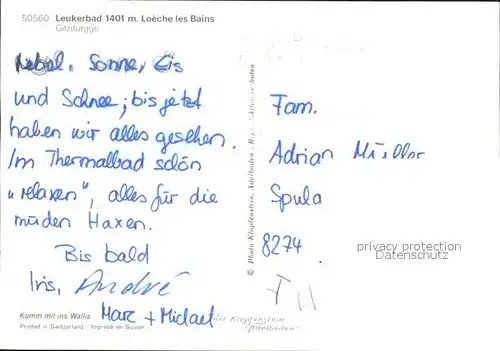 50560 Leukerbad 1401 m. Loèche les Bains
Gitzifurggi
Nebel, Sonne, Eis
und Schnee; bis jetzt
haben wir alles gesehen.
Im Thermalbad schön
"relaxen", alles für die
müden Haxen.
Bis bald
Iris, André
Marc + Michael
Komm mit ins Wallis
Printed in Switzerland - Imprimé en Suisse
© Photo Klopfenstein, Adelboden
Fam.
Adrian Müller
Spula
8274
privacy protection
Datenschutz
Klopfenstein
Adelboden